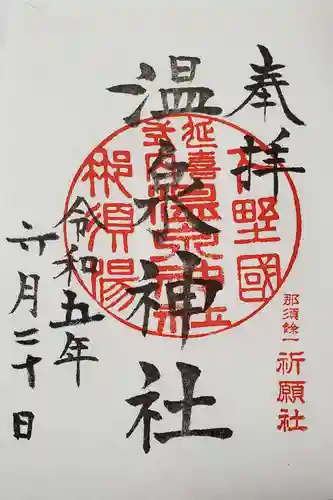 奉拝
下野國
延喜式内
温泉神社
那須湯
那須餘一
祈願社
温泉神社
令和五年
六月二十日